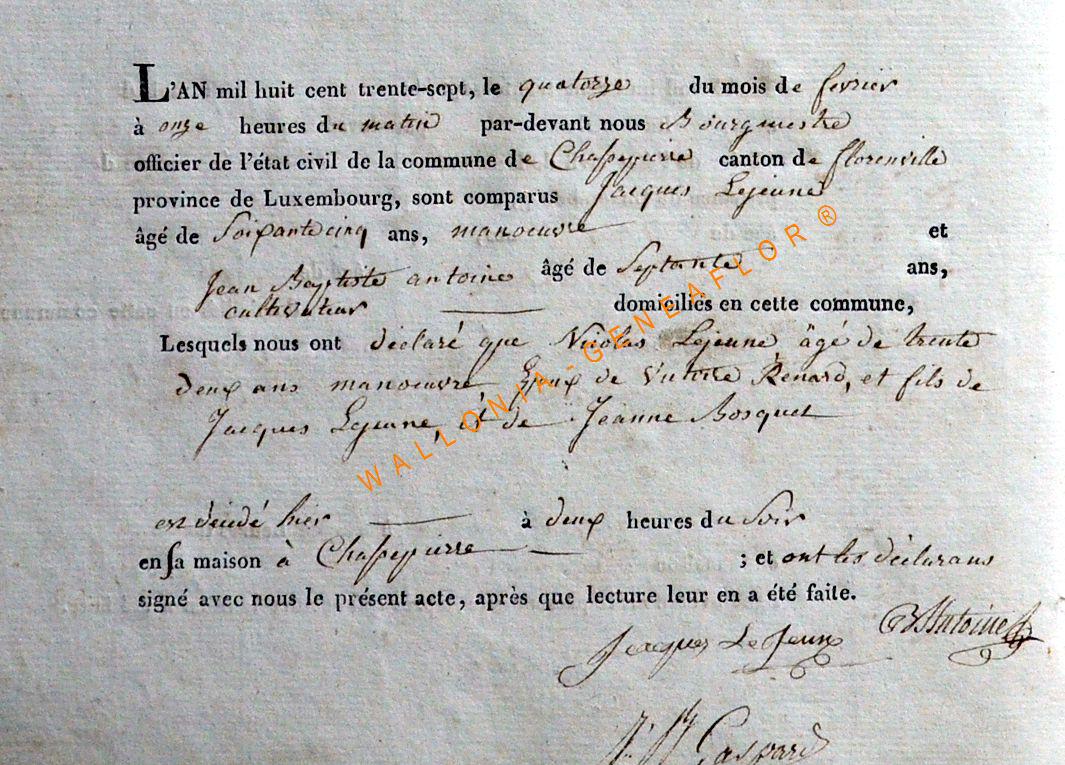 L'AN mil huit cent trente-sept, le quatorze du mois de fevrier
à onze heures du matin par-devant nous Bourgmestre
officier de l'état civil de la commune de Chassepierre canton de florenville
province de Luxembourg, sont comparus Jacques Lejeune
âgé de Soixante cinq ans, manoeuvre et
Jean Baptiste antoine âgé de Septante ans,
cultivateur domiciliés en cette commune,
Lesquels nous ont déclaré que Nicolas Lejeune âgé de trente
deux ans manoeuvre Epoux de Victoire Renard, et fils de
Jacques Lejeune, et de Jeanne Bosquet
est décédé hier à deux heures du Soir
en sa maison à Chassepierre ; et ont les déclarans
signé avec nous le présent acte, après que lecture leur en a été faite.
Jacques LeJeune Antoine
Gaspard
WALLONIA - GENEAFLOR ®